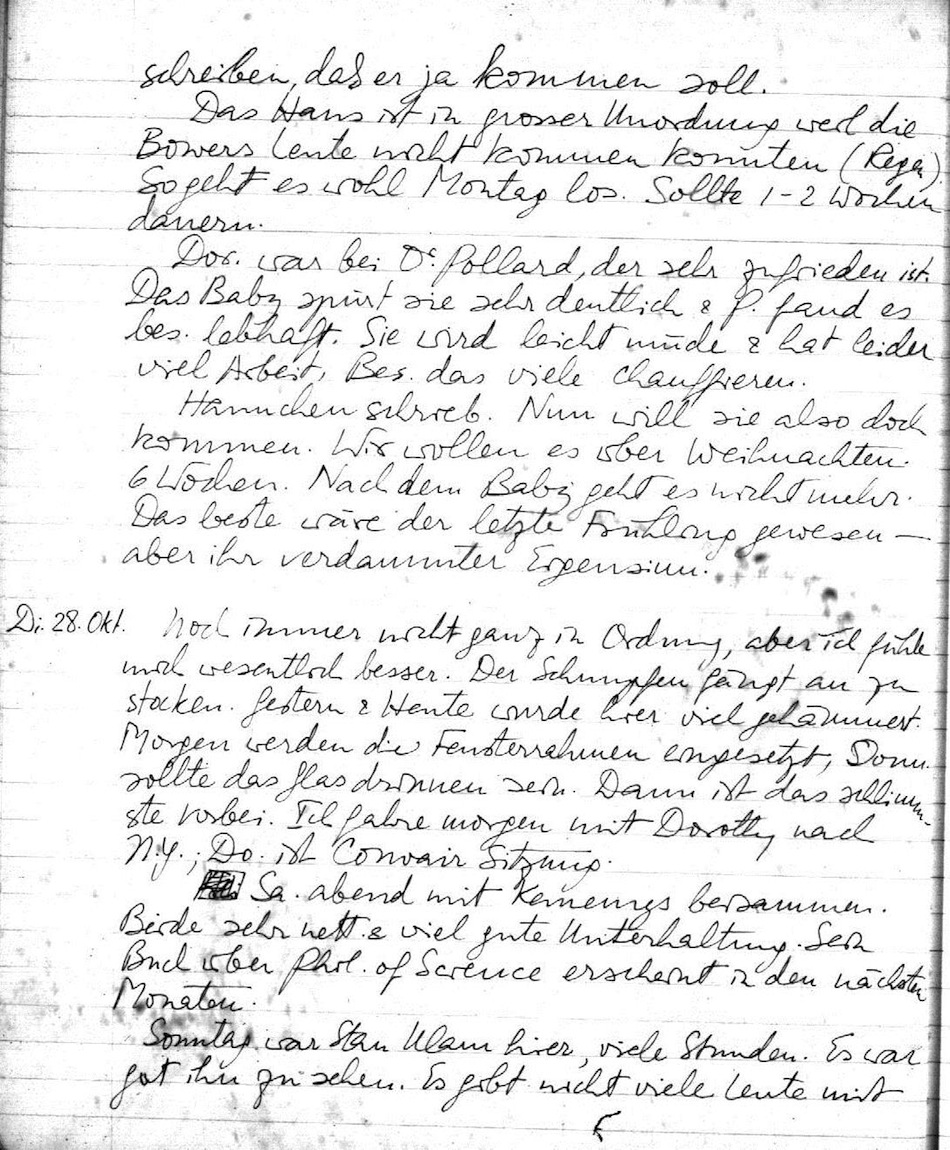 schreiben, daß er ja kommen soll.
Das Haus ist in grosser Unordnung weil die
Bowers Leute nicht kommen konnten (Regen).
So geht es wohl Montag los. Sollte 1-2 Wochen
dauern.
Dor. war bei Dr. Pollard, der sehr zufrieden ist.
Das Baby spürt sie sehr deutlich & P. fand es
bes. lebhaft. Sie wird leicht müde & hat leider
viel Arbeit, Bes. das viele chauffieren.
Hannchen schrieb. Nun will sie also doch
kommen. Wir wollen es über Weihnachten.
6 Wochen. Nach dem Baby geht es nicht mehr.
Das beste wäre der letzte Frühling gewesen —
aber ihr verdammter Eigensinn.
Di. 28. Okt. Noch immer nicht ganz in Ordnung, aber ich fühle
mich wesentlich besser. Der Schnupfen fängt an zu
stocken. Gestern & Heute wurde hier viel gehämmert.
Morgen werden die Fensterrahmen eingesetzt, Donn.
sollte das Glas drinnen sein. Dann ist das schlimm-
ste vorbei. Ich fahre morgen mit Dorothy nach
N.Y.; Do. ist Convair Sitzung.
Sa. abend mit Kemenys beisammen.
Beide sehr nett & viel gute Unterhaltung. Sein
Buch über Phil. of Science erscheint in den nächsten
Monaten.
Sonntag war Stan Ulam hier, viele Stunden. Es war
gut ihn zu sehen. Es gibt nicht viele Leute mit